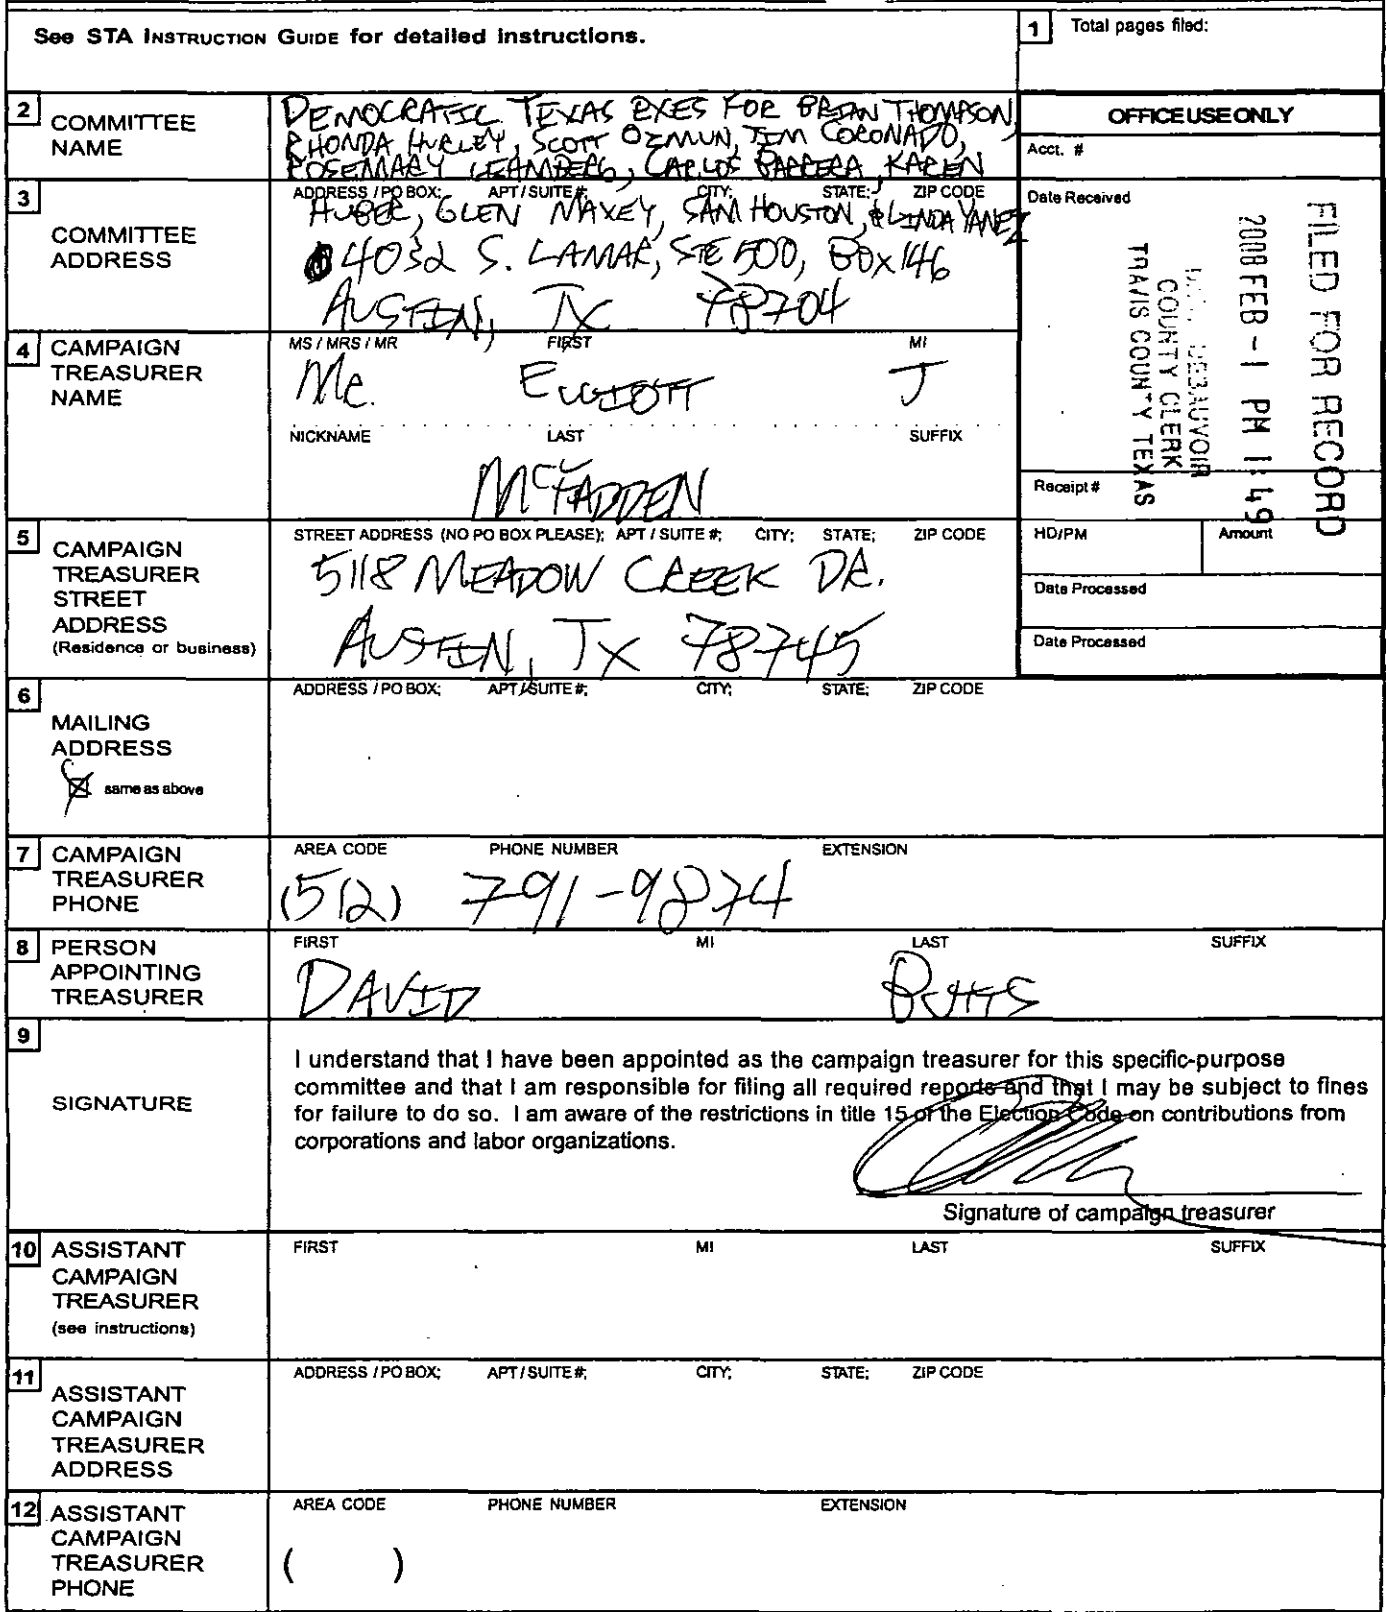 See STA INSTRUCTION GUIDE for detailed instructions.
1 Total pages filed:
2 COMMITTEE NAME
DEMOCRATIC TEXAS EXES FOR BRIAN THOMPSON,
RHONDA HURLEY, SCOTT OZMUN, JIM CORONADO,
ROSEMARY LEHMBERG, CARLOS BARRERA, KAREN
OFFICE USE ONLY
Acct. #
Date Received
FILED FOR RECORD
2008 FEB -1 PM 1:49
DEBAUVOIR
COUNTY CLERK
TRAVIS COUNTY TEXAS
Receipt #
HD/PM
Amount
Date Processed
Date Processed
3 COMMITTEE ADDRESS
ADDRESS / PO BOX; APT / SUITE #; CITY; STATE; ZIP CODE
HUBER, GLEN MAXEY, SAM HOUSTON, & LINDA YANEZ
4032 S. LAMAR, STE 500, BOX 146
AUSTIN, TX 78704
4 CAMPAIGN TREASURER NAME
MS / MRS / MR FIRST MI
MR. ELLIOTT J
NICKNAME LAST SUFFIX
MCFADDEN
5 CAMPAIGN TREASURER STREET ADDRESS
(Residence or business)
STREET ADDRESS (NO PO BOX PLEASE); APT / SUITE #; CITY; STATE; ZIP CODE
5118 MEADOW CREEK DR.
AUSTIN, TX 78745
6 MAILING ADDRESS
same as above
ADDRESS / PO BOX; APT / SUITE #; CITY; STATE; ZIP CODE
7 CAMPAIGN TREASURER PHONE
AREA CODE PHONE NUMBER EXTENSION
(512) 791-9874
8 PERSON APPOINTING TREASURER
FIRST MI LAST SUFFIX
DAVID BUTTS
9 SIGNATURE
I understand that I have been appointed as the campaign treasurer for this specific-purpose
committee and that I am responsible for filing all required reports and that I may be subject to fines
for failure to do so. I am aware of the restrictions in title 15 of the Election Code on contributions from
corporations and labor organizations.
Signature of campaign treasurer
10 ASSISTANT CAMPAIGN TREASURER
(see instructions)
FIRST MI LAST SUFFIX
11 ASSISTANT CAMPAIGN TREASURER ADDRESS
ADDRESS / PO BOX; APT / SUITE #; CITY; STATE; ZIP CODE
12 ASSISTANT CAMPAIGN TREASURER PHONE
AREA CODE PHONE NUMBER EXTENSION
( )